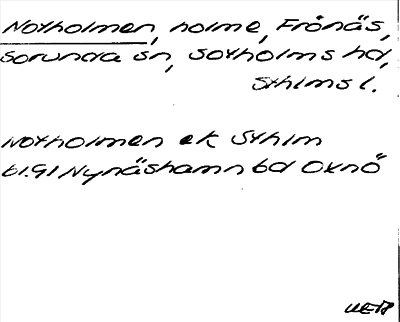 Notholmen, holme, Frönäs,
Sorunda sn, Sotholms hd,
Sthlms l.
Notholmen ek Sthlm
bl. 91 Nynäshamn bd Oxnö